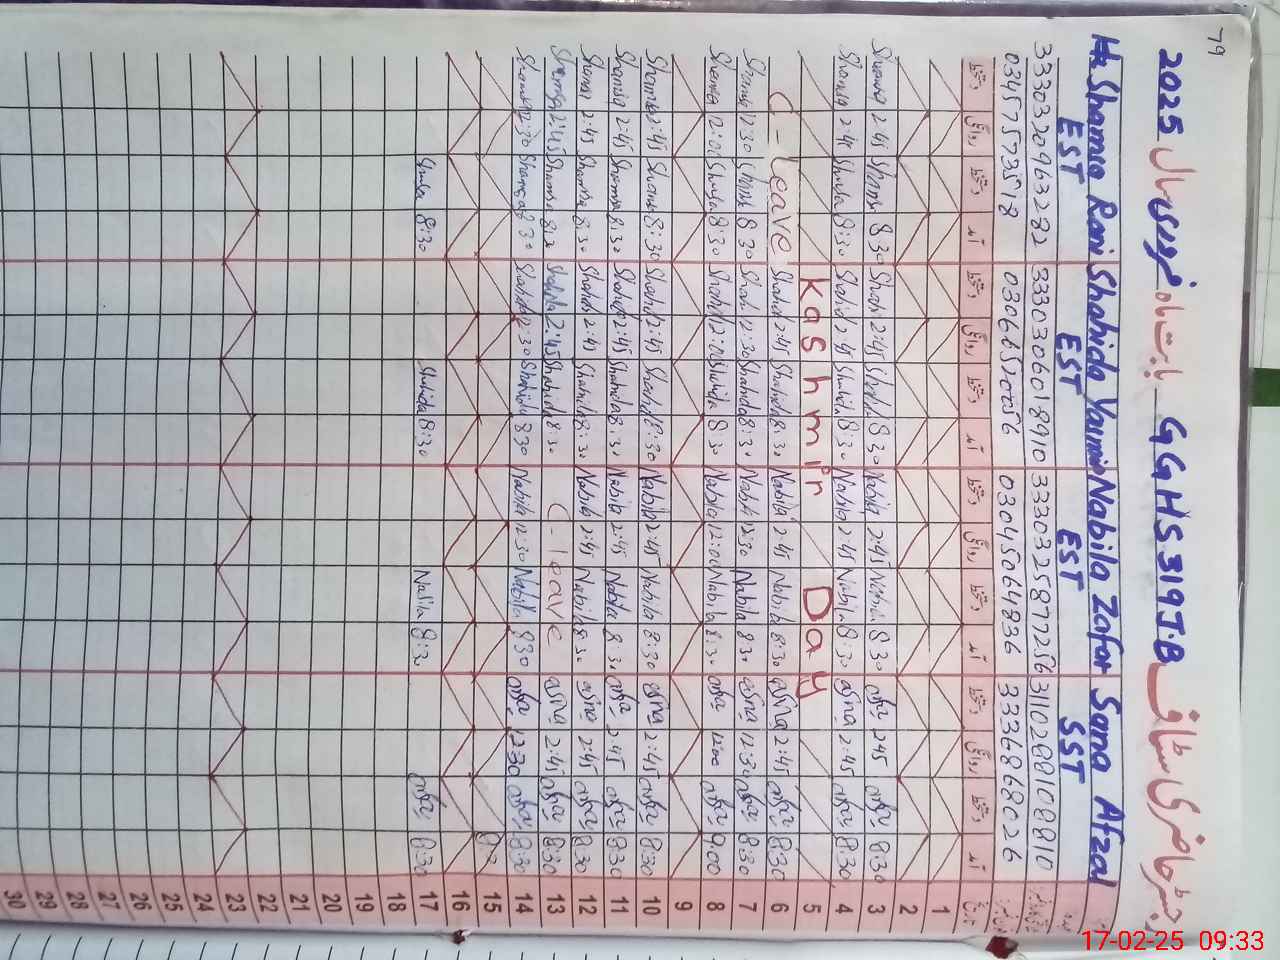 79
رجسٹر حاضری سٹاف GGHS 319 J.B بابت ماہ فروری سال 2025
Shamsa Rani Shahida Yasmin Nabila Zafar Sana Afzal
EST EST EST SST
3330320963282 3330306018910 3330325877256 3110288108810
03457573518 03045064836 3336868026
تاریخ آمد دستخط روانگی دستخط آمد دستخط روانگی دستخط آمد دستخط روانگی دستخط آمد دستخط روانگی دستخط
1
2
3 8:30 2:45 8:30 Nabila 2:45 8:30 Shahida 2:45 8:30 Shamsa 2:45 Shamsa
4 8:30 asma 2:45 8:30 Nabila 2:45 Nabila 8:30 Shahida 2:45 Shahid 8:30 Shamsa 2:45 Shamsa
5 Kashmir Day
6 8:30 2:45 asma 8:30 Nabila 2:45 Nabila 8:30 Shahida 2:45 Shahida C-leave
7 8:30 12:30 asma 8:30 Nabila 12:30 Nabila 8:30 Shahida 12:30 Shah 8:30 Shamsa 12:30 Shamsa
8 9:00 12:00 8:30 Nabila 12:00 Nabila 8:30 Shahida 12:00 Shahid 8:30 Shamsa 12:00 Shamsa
9
10 8:30 2:45 asma 8:30 Nabila 2:45 Nabila 8:30 Shahid 2:45 Shahid 8:30 Shamsa 2:45 Shamsa
11 8:30 2:45 8:30 Nabila 2:45 Nabila 8:30 Shahida 2:45 Shahida 8:30 Shamsa 2:45 Shamsa
12 8:30 2:45 asma 8:30 Nabila 2:45 Nabila 8:30 Shahida 2:45 Shahida 8:30 Shamsa 2:45 Shamsa
13 8:30 2:45 asma C-leave 8:30 Shahida 2:45 Shahida 8:30 Shamsa 2:45 Shamsa
14 8:30 12:30 8:30 Nabila 12:30 Nabila 8:30 Shahida 12:30 Shahida 8:30 Shamsa 12:30 Shamsa
15
16
17 8:30 8:30 Nabila 8:30 Shahida 8:30 Shamsa
18
19
20
21
22
23
24
25
26
27
28
29
30
17-02-25 09:33